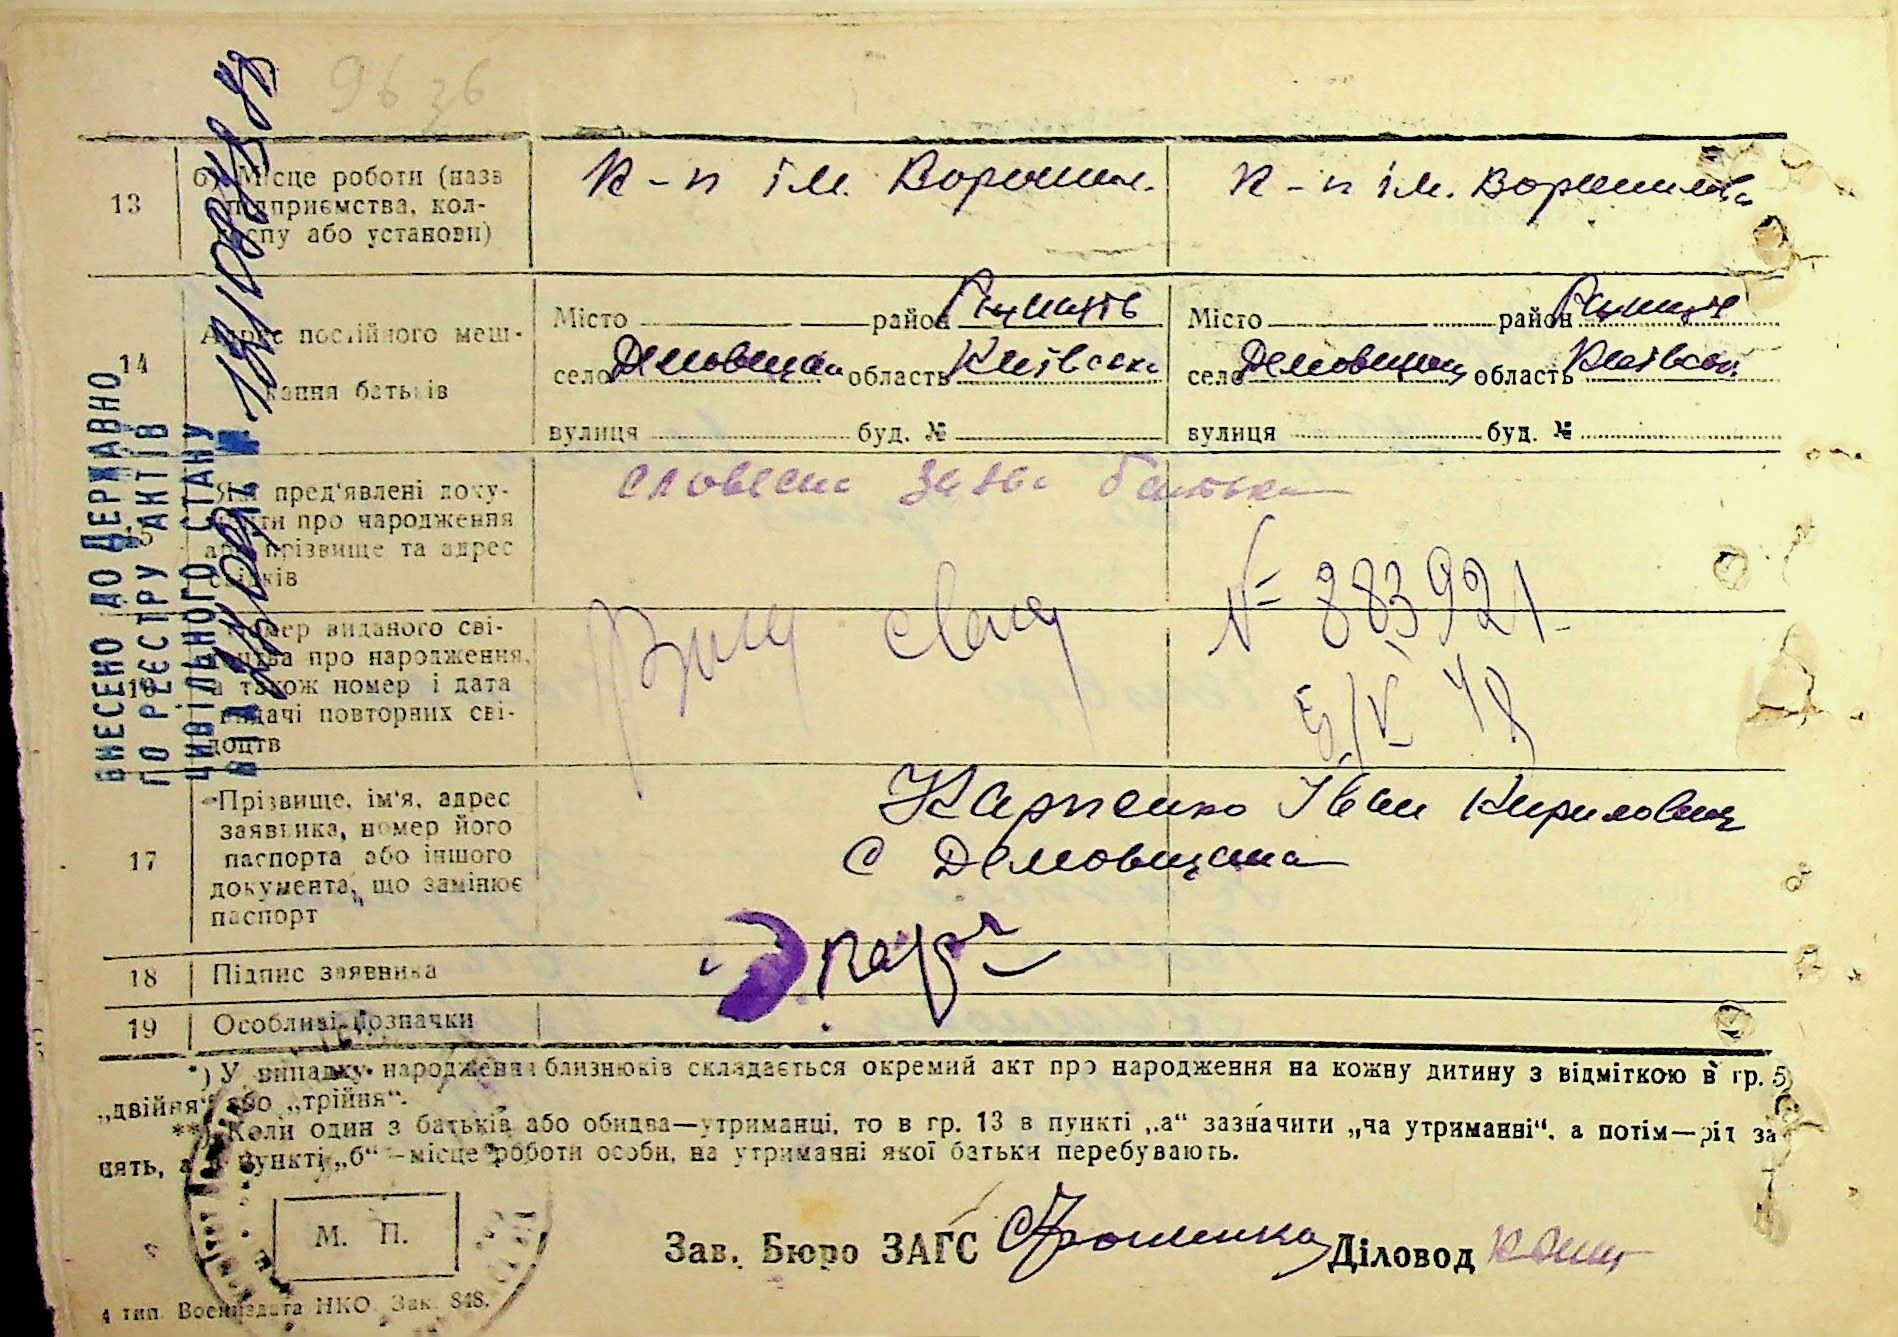 9636
13
б) Місце роботи (назв
підприємства, кол-
госпу або установи)
К-п ім. Ворошил.
К-п ім. Ворошилова
14
Адрес постійного меш-
кання батьків
Місто район
село Демовщина область Київська
вулиця буд. №
Місто район
село Демовщина область Київськ
вулиця буд. №
15
Які пред'явлені доку-
менти про народження
або прізвище та адрес
свідків
словесна заява батька
16
Номер виданого сві-
доцтва про народження,
а також номер і дата
видачі повторних сві-
доцтв
№ 883921
5/V 48
17
Прізвище, ім'я, адрес
заявника, номер його
паспорта або іншого
документа, що замінює
паспорт
Карпенко Іван Кирилович
с Демовщина
18
Підпис заявника
19
Особливі позначки
*) У випадку народження близнюків складається окремий акт про народження на кожну дитину з відміткою в гр. 5
„двійня“ або „трійня“.
**) Коли один з батьків або обидва—утриманці, то в гр. 13 в пункті „а“ зазначити „на утриманні“, а потім—рід за-
нять, а в пункті „б“—місце роботи особи, на утриманні якої батьки перебувають.
М. П.
Зав. Бюро ЗАГС
Діловод
4 тип. Воениздата НКО. Зак. 848.
ВНЕСЕНО ДО ДЕРЖАВНО
ПО РЕЄСТРУ АКТІВ
ЦИВІЛЬНОГО СТАНУ